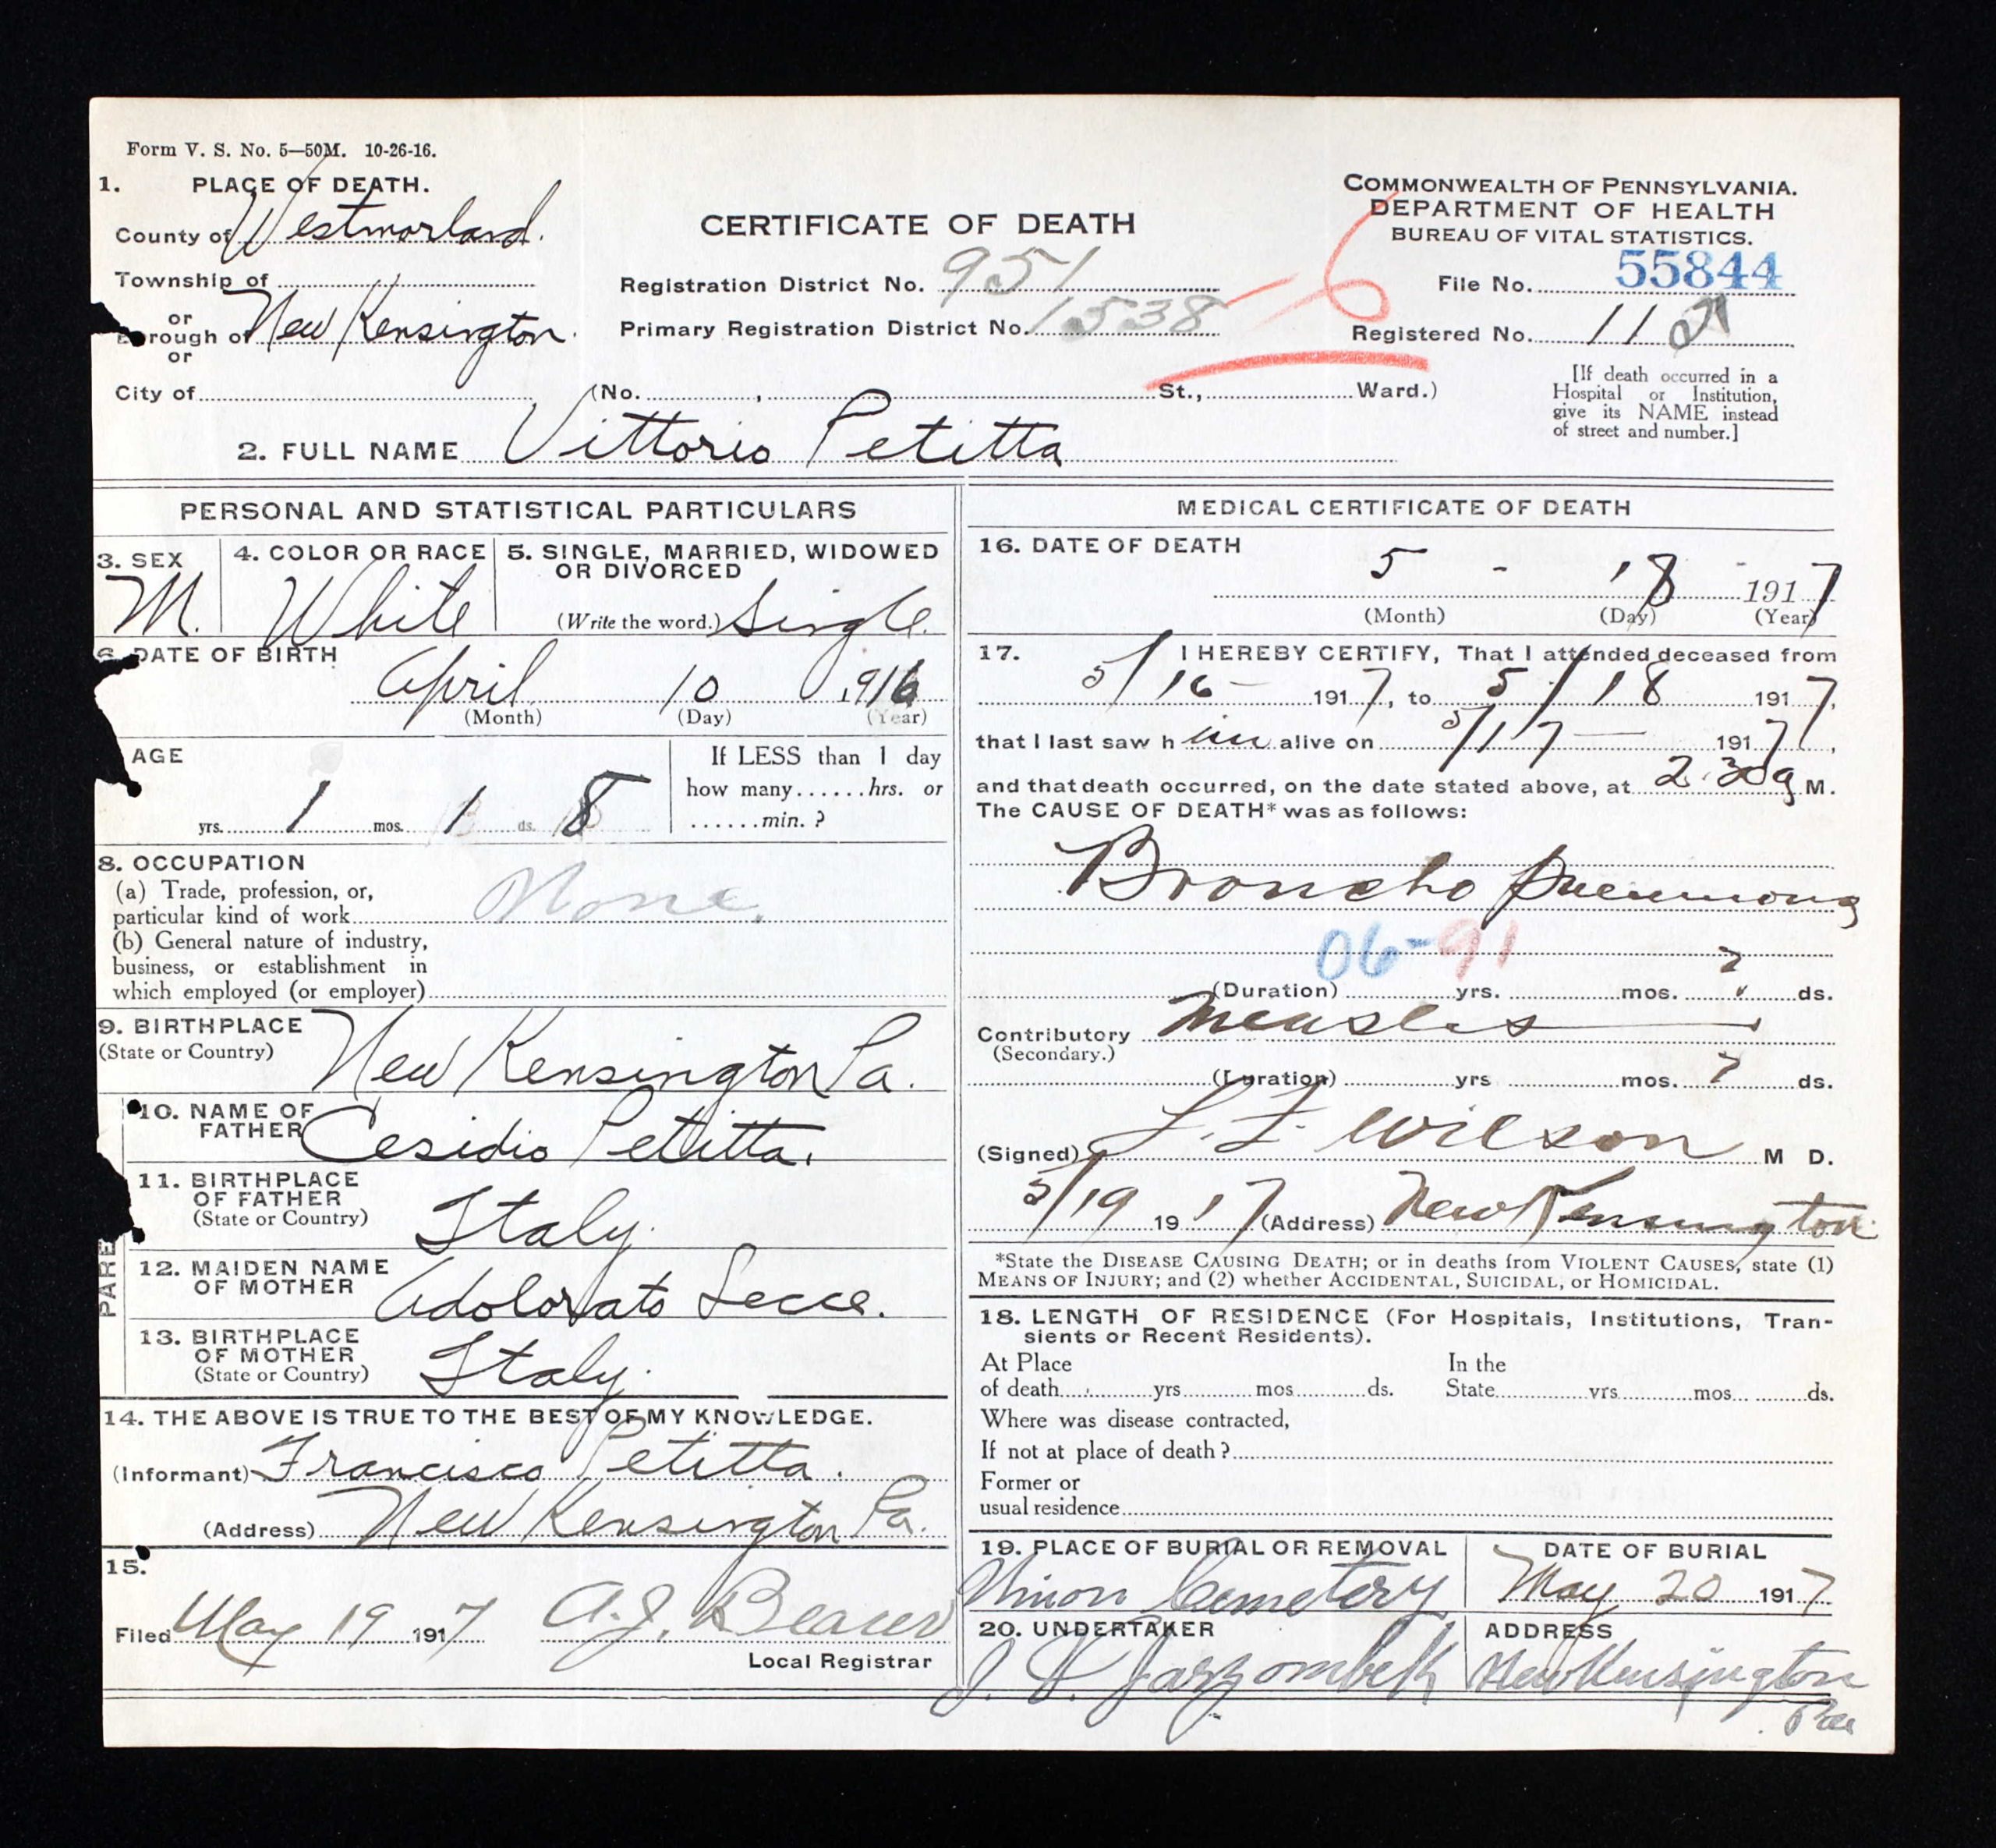 Form V. S. No. 5—50M. 10-26-16.
1. PLACE OF DEATH.
County of Westmorland.
Township of
or
Borough of New Kensington.
or
City of
CERTIFICATE OF DEATH
Registration District No. 951
Primary Registration District No. 1538 - 6
(No. , St., Ward.)
COMMONWEALTH OF PENNSYLVANIA.
DEPARTMENT OF HEALTH
BUREAU OF VITAL STATISTICS.
File No. 55844
Registered No.
[If death occurred in a
Hospital or Institution,
give its NAME instead
of street and number.]
2. FULL NAME Vittorio Petitta
PERSONAL AND STATISTICAL PARTICULARS
3. SEX
M.
4. COLOR OR RACE
White
5. SINGLE, MARRIED, WIDOWED
OR DIVORCED
(Write the word.) Single.
6. DATE OF BIRTH
April 10 1916
(Month) (Day) (Year)
AGE
yrs. 1 mos. 1 ds. 8
If LESS than 1 day
how many......hrs. or
......min. ?
8. OCCUPATION
(a) Trade, profession, or,
particular kind of work None.
(b) General nature of industry,
business, or establishment in
which employed (or employer)
9. BIRTHPLACE
(State or Country) New Kensington Pa.
PARE
10. NAME OF
FATHER Cesidio Petitta.
11. BIRTHPLACE
OF FATHER
(State or Country) Italy.
12. MAIDEN NAME
OF MOTHER Adolorato Lecce.
13. BIRTHPLACE
OF MOTHER
(State or Country) Italy.
14. THE ABOVE IS TRUE TO THE BEST OF MY KNOWLEDGE.
(Informant) Francisco Petitta.
(Address) New Kensington Pa.
15.
Filed May 19 1917 A.J. Beacer
Local Registrar
MEDICAL CERTIFICATE OF DEATH
16. DATE OF DEATH
5 - 18 - 1917
(Month) (Day) (Year)
17. I HEREBY CERTIFY, That I attended deceased from
5/16 - 1917, to 5/18 1917,
that I last saw him alive on 5/17 — 1917,
and that death occurred, on the date stated above, at 2.30 a M.
The CAUSE OF DEATH* was as follows:
Broncho pneumonia
06-91
(Duration) yrs. mos. ? ds.
Contributory Measles
(Secondary.)
(Duration) yrs mos. ? ds.
(Signed) L. F. Wilson M D.
5/19 1917 (Address) New Kensington
*State the DISEASE CAUSING DEATH; or in deaths from VIOLENT CAUSES, state (1)
MEANS OF INJURY; and (2) whether ACCIDENTAL, SUICIDAL, or HOMICIDAL.
18. LENGTH OF RESIDENCE (For Hospitals, Institutions, Tran-
sients or Recent Residents).
At Place In the
of death yrs mos ds. State yrs mos ds.
Where was disease contracted,
If not at place of death ?
Former or
usual residence
19. PLACE OF BURIAL OR REMOVAL
Union Cemetery
DATE OF BURIAL
May 20 1917
20. UNDERTAKER
J. V. Jarzombek
ADDRESS
New Kensington
Pa